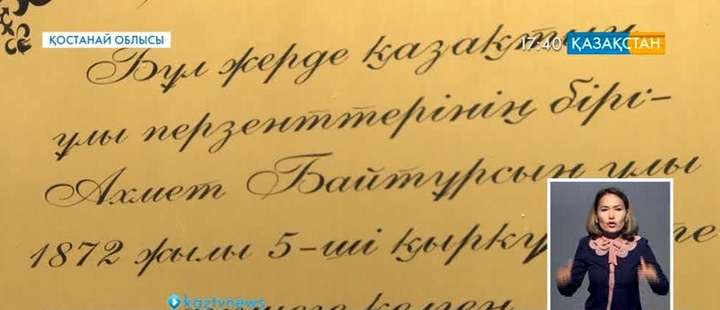 ҚОСТАНАЙ ОБЛЫСЫ
17:40 ҚАЗАҚСТАН
Бұл жерде қазақтың
ұлы перзенттерінің бірі-
Ахмет Байтұрсын ұлы
1872 жылы 5-ші
kaztvnews